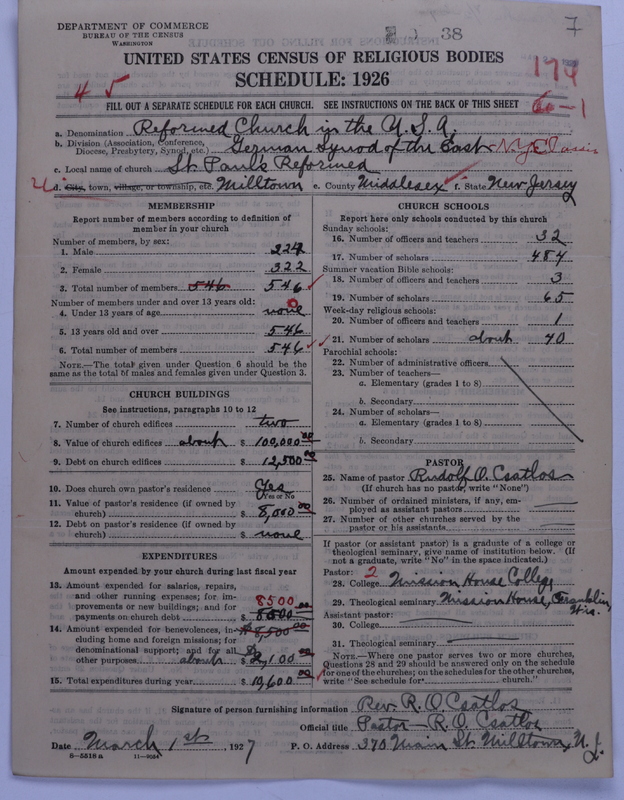 DEPARTMENT OF COMMERCE
BUREAU OF THE CENSUS
WASHINGTON
38
7
UNITED STATES CENSUS OF RELIGIOUS BODIES
SCHEDULE: 1926
194
4 5
FILL OUT A SEPARATE SCHEDULE FOR EACH CHURCH. SEE INSTRUCTIONS ON THE BACK OF THIS SHEET
60-1
a. Denomination Reformed Church in the U.S.A.
b. Division (Association, Conference, Diocese, Presbytery, Synod, etc.) German Synod of the East N.Y. Classis
c. Local name of church St. Paul's Reformed
d. City, town, village, or township, etc. Milltown e. County Middlesex f. State New Jersey
MEMBERSHIP
Report number of members according to definition of member in your church
Number of members, by sex:
1. Male 224
2. Female 322
3. Total number of members 546 546
Number of members under and over 13 years old:
4. Under 13 years of age none 0
5. 13 years old and over 546
6. Total number of members 546
NOTE.—The total given under Question 6 should be the same as the total of males and females given under Question 3.
CHURCH BUILDINGS
See instructions, paragraphs 10 to 12
7. Number of church edifices two
8. Value of church edifices about $ 100,000 00
9. Debt on church edifices $ 12,500 00
10. Does church own pastor's residence Yes
Yes or No
11. Value of pastor's residence (if owned by church) $ 8,000 00
12. Debt on pastor's residence (if owned by church) $ none
EXPENDITURES
Amount expended by your church during last fiscal year
13. Amount expended for salaries, repairs, and other running expenses; for improvements or new buildings; and for payments on church debt $ 8500 00
8500
14. Amount expended for benevolences, including home and foreign missions; for denominational support; and for all other purposes about $ 2,100 00
8,500 00
15. Total expenditures during year $ 10,600 00
CHURCH SCHOOLS
Report here only schools conducted by this church
Sunday schools:
16. Number of officers and teachers 32
17. Number of scholars 484
Summer vacation Bible schools:
18. Number of officers and teachers 3
19. Number of scholars 65
Week-day religious schools:
20. Number of officers and teachers 1
21. Number of scholars about 40
Parochial schools:
22. Number of administrative officers
23. Number of teachers—
a. Elementary (grades 1 to 8)
b. Secondary
24. Number of scholars—
a. Elementary (grades 1 to 8)
b. Secondary
PASTOR
25. Name of pastor Rudolf O. Csatlos
(If church has no pastor, write "None")
26. Number of ordained ministers, if any, employed as assistant pastors
27. Number of other churches served by the pastor or his assistants
If pastor (or assistant pastor) is a graduate of a college or theological seminary, give name of institution below. (If not a graduate, write "No" in the space indicated.)
Pastor: 2
28. College Mission House College
29. Theological seminary Mission House, Franklin, Wis.
Assistant pastor:
30. College
31. Theological seminary
NOTE.—Where one pastor serves two or more churches, Questions 28 and 29 should be answered only on the schedule for one of the churches; on the schedules for the other churches, write "See schedule for church."
Signature of person furnishing information Rev. R. O. Csatlos
Official title Pastor - R. O. Csatlos
Date March 1st 1927 P. O. Address 370 Main St. Milltown, N. J.
S-5518a 11-9084